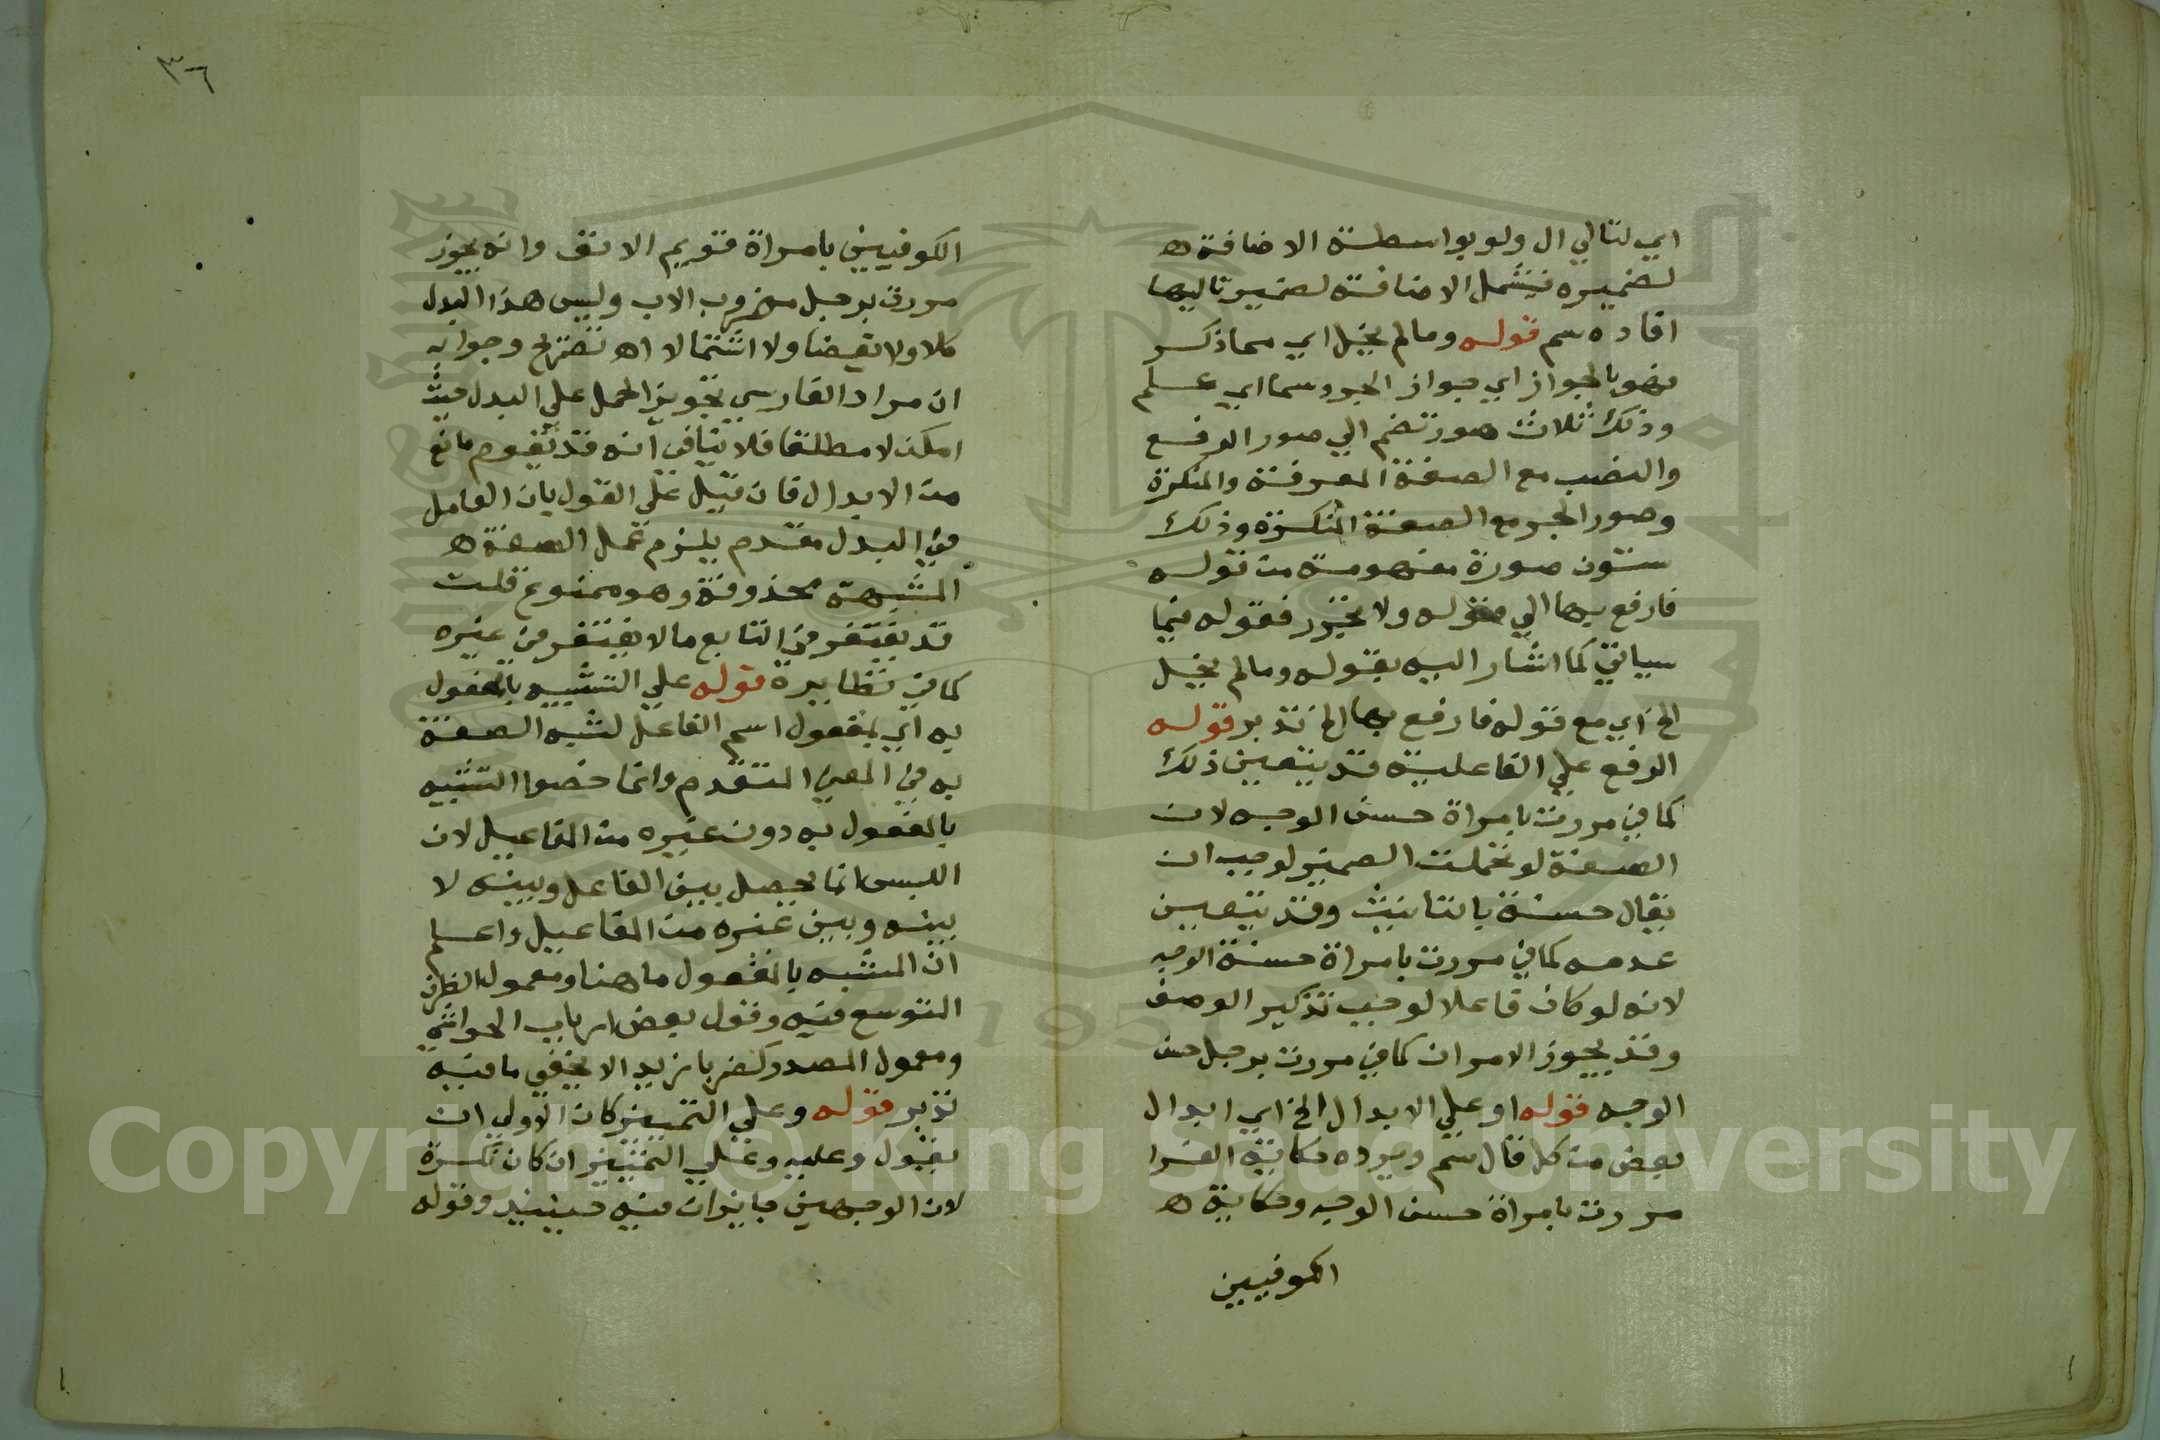 اي لتالي ال ولو بواسطة الاضافة ه
لضميره فتشمل الاضافة لضمير تاليها
افاده سم قوله وما لم يخل اي مما ذكر
فهو بالجواز اي جواز الجر وسما اي علم
وذلك ثلاث صور تضم الي صور الرفع
والنصب مع الصفة المعرفة والمنكرة
وصور الجر مع الصفة المنكرة وذلك
ستون صورة مفهومة من قوله
فارفع بها الي قوله ولا تجرر فقوله فيما
سياتي كما اشار اليه بقوله وما لم يخل
الخ اي مع قوله فارفع بها الخ تدبر قوله
الرفع علي الفاعلية قد يتعين ذلك
كما في مررت بامراة حسن الوجه لان
الصفة لو تحملت الضمير لوجب ان
يقال حسنة بالتانيث وقد يتعين
عدمه كما في مررت بامراة حسنة الوجه
لانه لو كان فاعلا لوجب تذكير الوصف
وقد يجوز الامران كما في مررت برجل حسن
الوجه قوله او علي الابدال الخ اي ابدال
بعض من كل قال سم ويرده حكاية الفرا
مررت بامراة حسن الوجه وحكاية ه
الكوفيين
٣٦
الكوفيين بامراة قويم الانف وانه يجوز
مررت برجل مضروب الاب وليس هذا البدل
كلا ولا بعضا ولا اشتمالا اه تصريح وجوابه
ان مراد الفارسي تجويز الحمل علي البدل حيث
امكن لا مطلقا فلا ينافي انه قد يقوم مانع
من الابدال فان قيل علي القول بان العامل
في البدل مقدم يلزم عمل الصفة ه
المشبهة محذوفة وهو ممنوع قلت
قد يغتفر في التابع ما لا يغتفر في غيره
كما في نظايره قوله علي التشبيه بالمفعول
به اي بمفعول اسم الفاعل لشبه الصفة
به في المعني المتقدم وانما خصوا التشبيه
بالمفعول به دون غيره من المفاعيل لان
اللبس انما يحصل بين الفاعل وبينه لا
بينه وبين غيره من المفاعيل واعلم
ان المشبه بالمفعول ما هنا ومعمول الظرف
المتوسع فيه وقول بعض ارباب الحواشي
ومعمول المصدر كضربا زيدا لا يخفي ما فيه
تدبر قوله وعلي التمييز كان الاولي ان
يقول وعليه وعلي التمييز ان كان نكرة
لان الوجهين جايزان فيه حينيذ وقوله
Copyright © King Saud University
1957